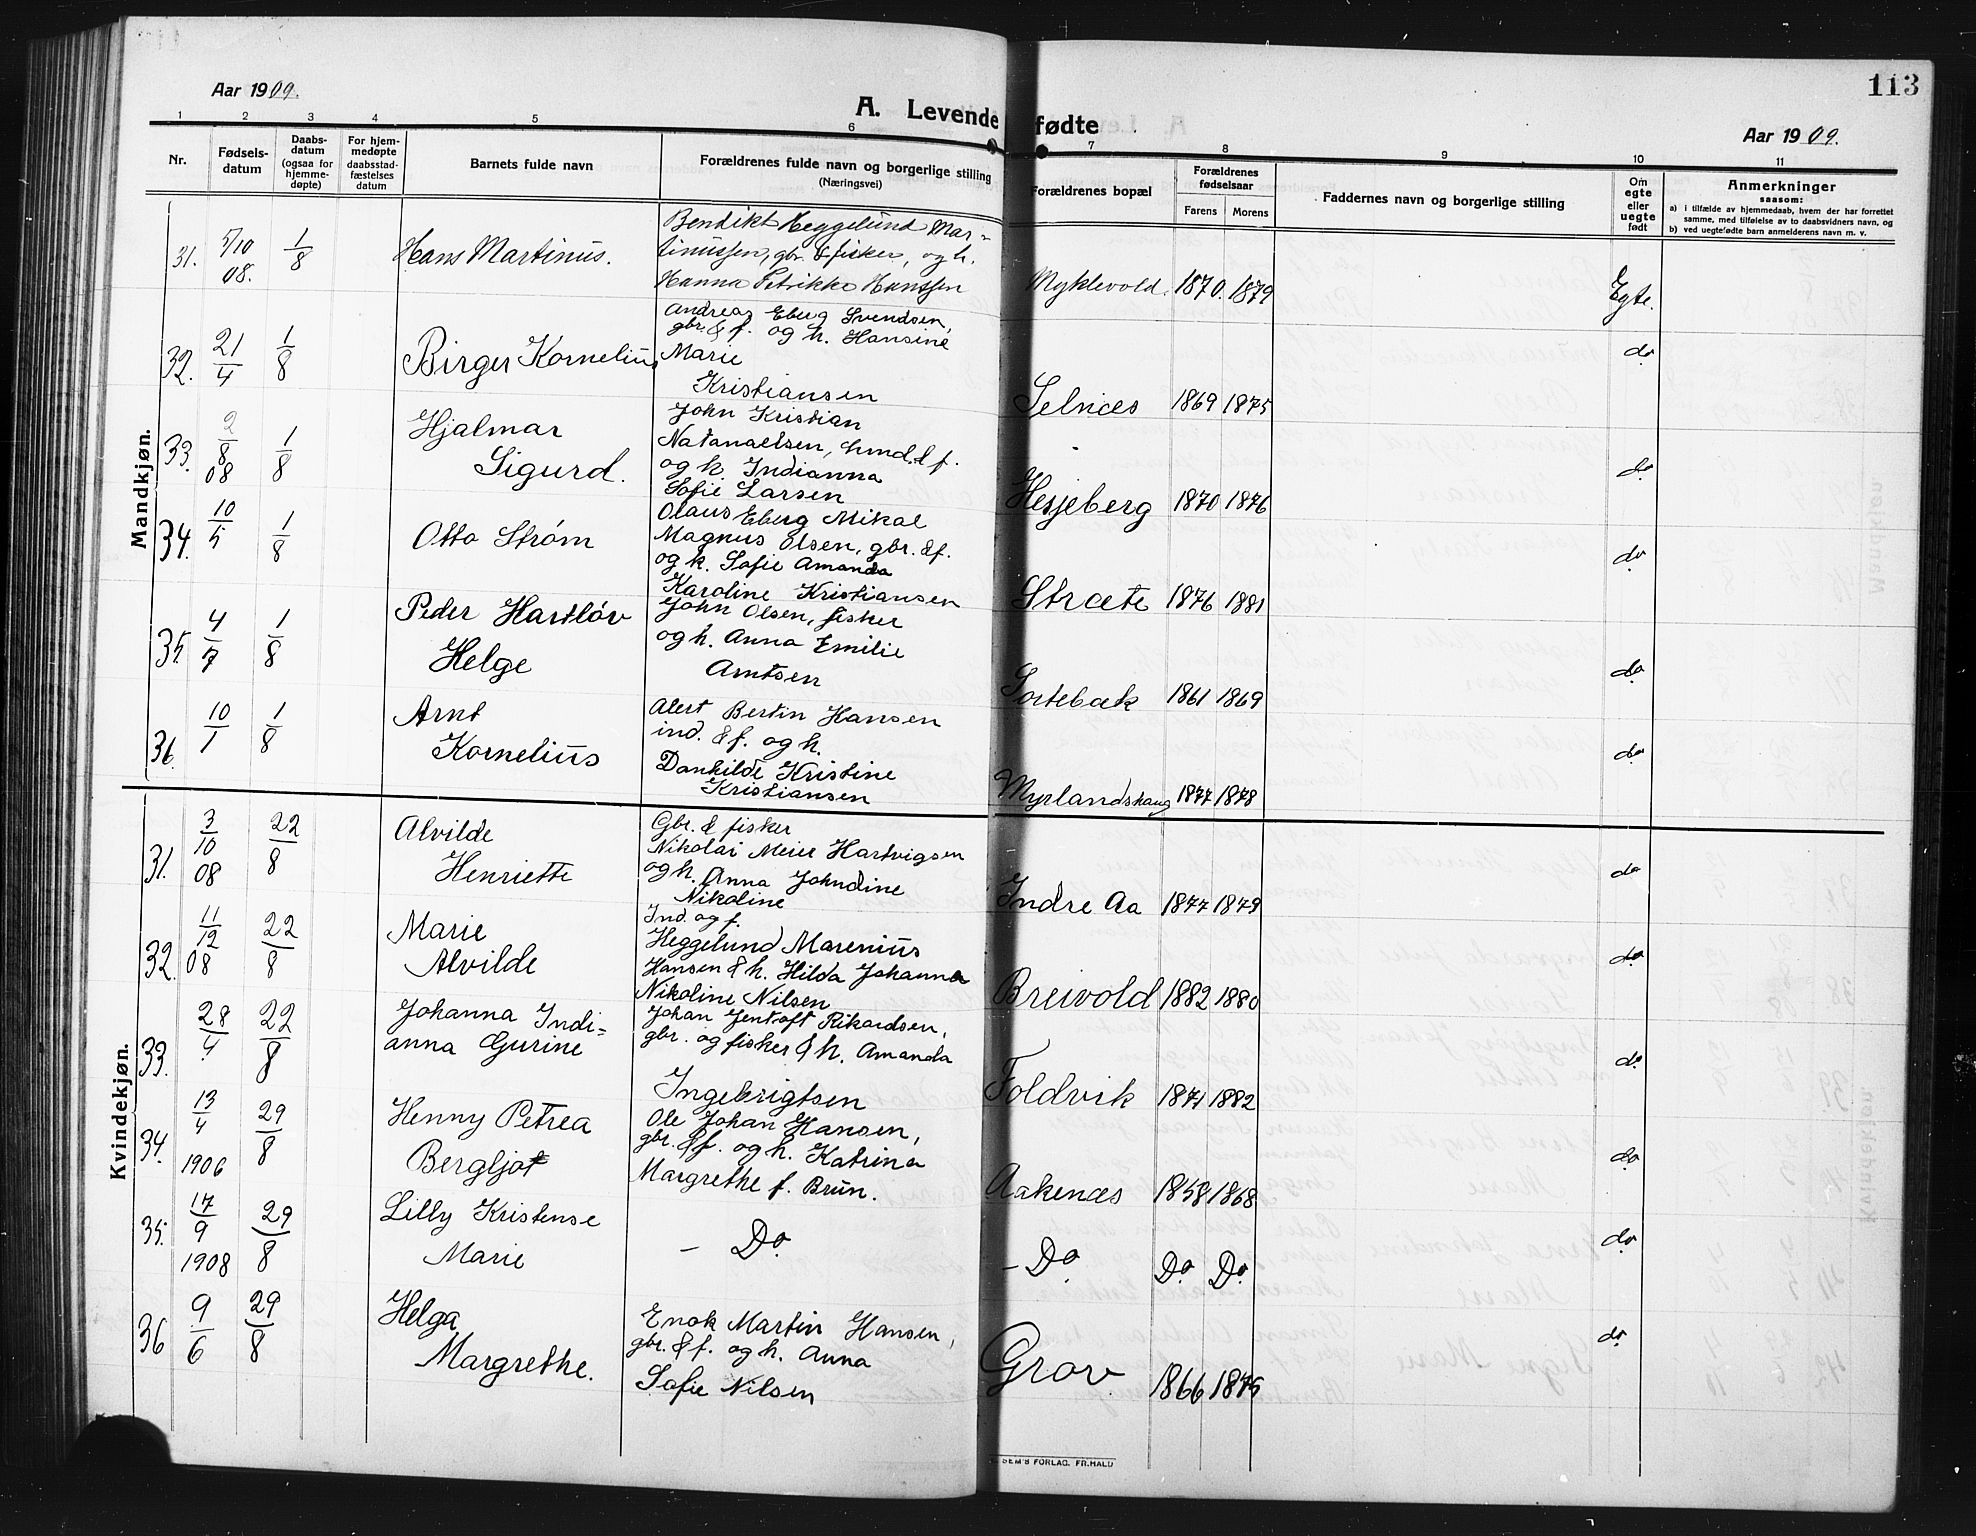 113
Aar 1909.
A. Levende fødte
Aar 1909.
1 2 3 4 5 6 7 8 9 10 11
Nr.
Fødsels-
datum
Daabs-
datum
(ogsaa for
hjemme-
døpte)
For hjem-
medøpte
daabsstad-
fæstelses
datum
Barnets fulde navn
Forældrenes fulde navn og borgerlige stilling
(Næringsvei)
Forældrenes bopæl
Forældrenes
fødselsaar
Farens Morens
Faddernes navn og borgerlige stilling
Om
egte
eller
uegte
født
Anmerkninger
saasom:
a) i tilfælde av hjemmedaab, hvem der har forrettet
samme, med tilføielse av to daabsvidners navn, og
b) ved uegtefødte barn anmelderens navn m. v.
Mandkjøn.
31. 5/10 08. 1/8 Hans Martinus.
Bendikt Heggelund Mar-
tinussen, gbr. & fisker, og h.
Hanna Petrikke Hanssen
Myklevold. 1870. 1879 Egte.
32. 21/4 1/8 Birger Kornelius
Andreas Eberg Svendsen,
gbr. & f. og h. Hansine
Marie
Kristiansen
Selnæs 1869 1875 do
33. 2/8 08 1/8 Hjalmar
Sigurd.
John Kristian
Natanaelsen, hmd. & f.
og h Indianna
Sofie Larsen
Hesjeberg 1870 1876 do
34. 10/5 1/8 Otto Strøm
Olaus Eberg Mikal
Magnus Olsen, gbr. & f.
og h. Sofie Amanda
Karoline Kristiansen
Stræte 1876 1881 do
35. 4/7 1/8 Peder Hartløv
Helge
John Olsen, fisker
og h. Anna Emilie
Arntsen
Sortebæk 1861 1869 do
36. 10/1 1/8 Arnt
Kornelius
Alert Bertin Hansen
ind. & f. og h.
Danhilde Kristine
Kristiansen
Myrlandshaug 1877 1878 do
Kvindekjøn.
31. 3/10 08 22/8 Alvilde
Henriette
Gbr. & fisker
Nikolai Meier Hartvigsen
og h. Anna Johndine
Nikoline
Indre Aa 1877 1879 do
32. 11/12 08 22/8 Marie
Alvilde
Ind. og f.
Heggelund Marenius
Hansen & h. Hilda Johanna
Nikoline Nilsen
Breivold 1882 1880 do
33. 28/4 22/8 Johanna Indi=
anna Gurine
Johan Jentoft Rikardsen,
gbr. og fisker & h. Amanda
Ingebrigtsen
Foldvik 1871 1882 do
34. 13/4 1906 29/8 Henny Petrea
Bergljot
Ole Johan Hansen,
gbr. & f. og h. Katrina
Margrethe f. Brun.
Aakenæs 1858 1868 do
35. 17/9 1908 29/8 Lilly Kristense
Marie
- Do.
- Do Do. Do. do
36 9/6 29/8 Helga
Margrethe.
Enok Martin Hansen,
gbr. & f. og h. Anna
Sofie Nilsen
Grov 1866 1875 do
SEM'S FORLAG, FR.HALD